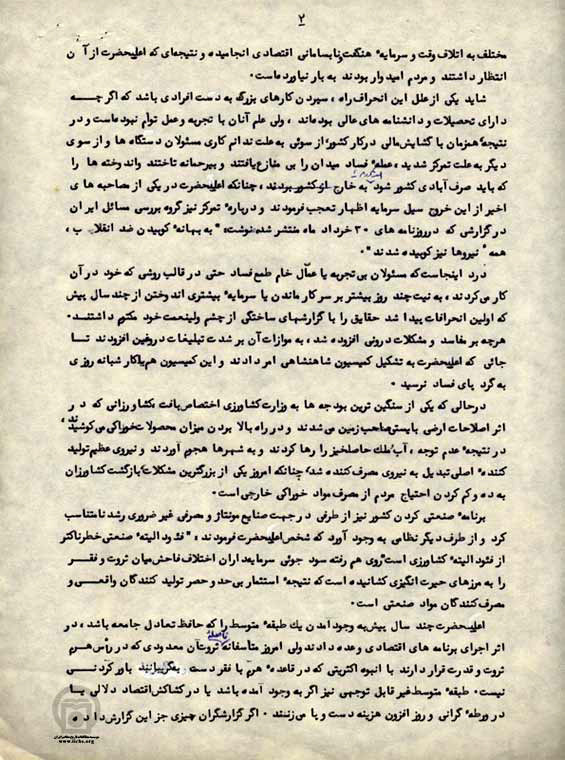 ۲
مختلف به اتلاف وقت و سرمایه هنگفت و نابسامانی اقتصادی انجامیده و نتیجه‌ای که اعلیحضرت از آن
انتظار داشتند و مردم امیدوار بودند به بار نیاورده‌است.
شاید یکی از علل این انحراف راه، سپردن کارهای بزرگ به دست افرادی باشد که اگر چه
دارای تحصیلات و دانشنامه های عالی بوده‌اند، ولی علم آنان با تجربه و عمل توأم نبوده‌است و در
نتیجه همزمان با گشایش مالی در کار کشور از سوئی به علت ندانم کاری مسئولان دستگاه ها و از سوی
دیگر به علت تمرکز شدید، عمله فساد میدان را بی منازع یافتند و بیرحمانه تاختند و اندوخته ها را
که باید صرف آبادی کشور شود به خارج از کشور بردند، چنانکه اعلیحضرت در یکی از مصاحبه های
اخیر از این خروج سیل سرمایه اظهار تعجب فرمودند و درباره تمرکز نیز گروه بررسی مسائل ایران
در گزارشی که در روزنامه های ۳۰ خرداد ماه منتشر شده نوشت: " به بهانه کوبیدن ضد انقلاب،
همه نیروها نیز کوبیده شدند ".
درد اینجاست که مسئولان بی تجربه یا عمّال خام طمع فساد حتی در قالب روشی که خود در آن
کار می‌کردند، به نیت چند روز بیشتر بر سر کار ماندن یا سرمایه بیشتری اندوختن از چند سال پیش
که اولین انحرافات پیدا شد حقایق را با گزارشهای ساختگی از چشم ولینعمت خود مکتوم داشتند.
هرچه بر مفاسد و مشکلات درونی افزوده شد، به موازات آن بر شدت تبلیغات دروغین افزودند تا
جائی که اعلیحضرت به تشکیل کمیسیون شاهنشاهی امر دادند و این کمیسیون هم با کار شبانه روزی
به گرد پای فساد نرسید.
درحالی که یکی از سنگین ترین بودجه ها به وزارت کشاورزی اختصاص یافت، کشاورزانی که در
اثر اصلاحات ارضی بایستی صاحب زمین می شدند و در راه بالا بردن میزان محصولات خوراکی می کوشیدند،
در نتیجه عدم توجه، آب و ملک حاصلخیز را رها کردند و به شهرها هجوم آوردند و نیروی عظیم تولید
کننده اصلی تبدیل به نیروی مصرف کننده شد، چنانکه امروز یکی از بزرگترین مشکلات، بازگشت کشاورزان
به ده و کم کردن احتیاج مردم از مصرف مواد خوراکی خارجی است.
برنامه صنعتی کردن کشور نیز از طرفی در جهت صنایع مونتاژ و مصرفی غیر ضروری رشد نامتناسب
کرد و از طرف دیگر نظامی به وجود آورد که شخص اعلیحضرت فرمودند، " فئودالیته صنعتی خطرناکتر
از فئودالیته کشاورزی است" روی هم رفته سود جوئی سرمایه‌داران اختلاف فاحش میان ثروت و فقر
را به مرزهای حیرت انگیزی کشانیده است که نتیجه استثمار بی حد و حصر تولید کنندگان واقعی و
مصرف کنندگان مواد صنعتی است.
اعلیحضرت چند سال پیش به وجود آمدن یک طبقه متوسط را که حافظ تعادل جامعه باشد، در
اثر اجرای برنامه های اقتصادی وعده دادند ولی امروز متأسفانه فاصله ثروت آن معدودی که در رأس هرم
ثروت و قدرت قرار دارند با انبوه اکثریتی که در قاعده هرم با فقر دست بگریبانند باور کردنی
نیست. طبقه متوسط غیر قابل توجهی نیز اگر به وجود آمده باشد یا در کشاکش اقتصاد دلالی یا
در ورطه گرانی و روز افزون هزینه دست و پا می زنند. اگر گزارشگران چیزی جز این گزارش داده
www.iichs.org